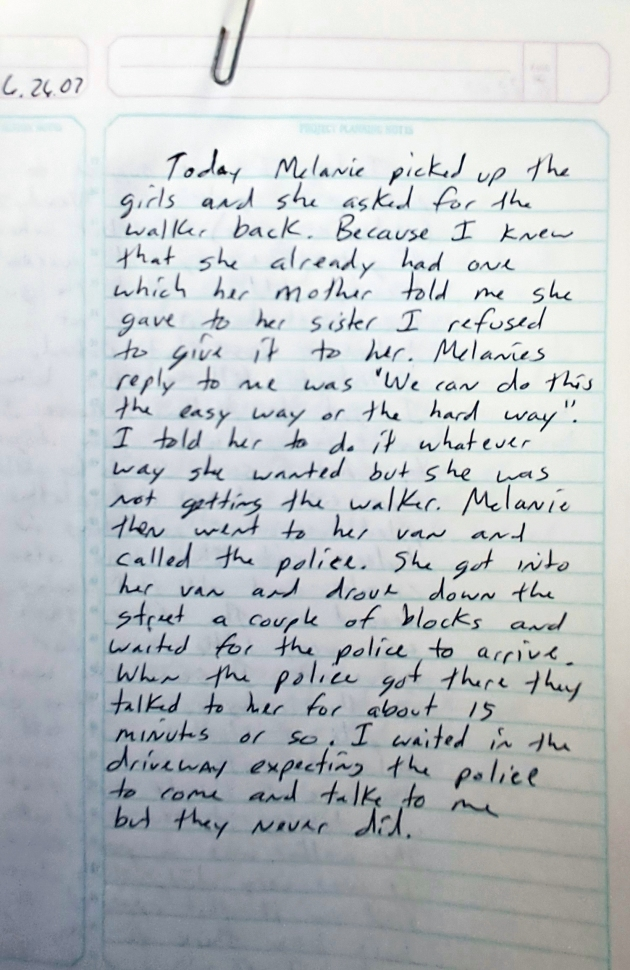 6.26.07
PROJECT PLANNING NOTES
Today Melanie picked up the
girls and she asked for the
walker back. Because I knew
that she already had one
which her mother told me she
gave to her sister I refused
to give it to her. Melanies
reply to me was "We can do this
the easy way or the hard way".
I told her to do it whatever
way she wanted but she was
not getting the walker. Melanie
then went to her van and
called the police. She got into
her van and drove down the
street a couple of blocks and
waited for the police to arrive.
When the police got there they
talked to her for about 15
minutes or so. I waited in the
driveway expecting the police
to come and talke to me
but they never did.